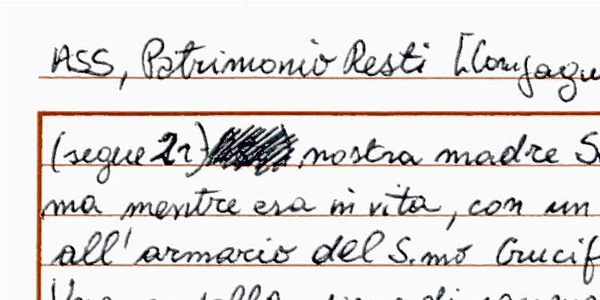 ASS, Patrimonio Resti
(segue 2r) nostra madre
ma mentre era in vita, con un
all'armario del S.mo